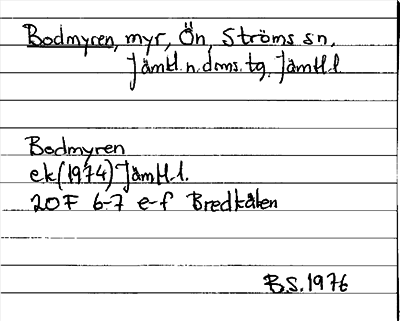 Bodmyren, myr, Ön, Ströms sn,
Jämtl.n.doms.tg, Jämtl.l
Bodmyren
ek(1974) Jämtl.l.
20F 6-7 e-f Bredkålen
B.S. 1976